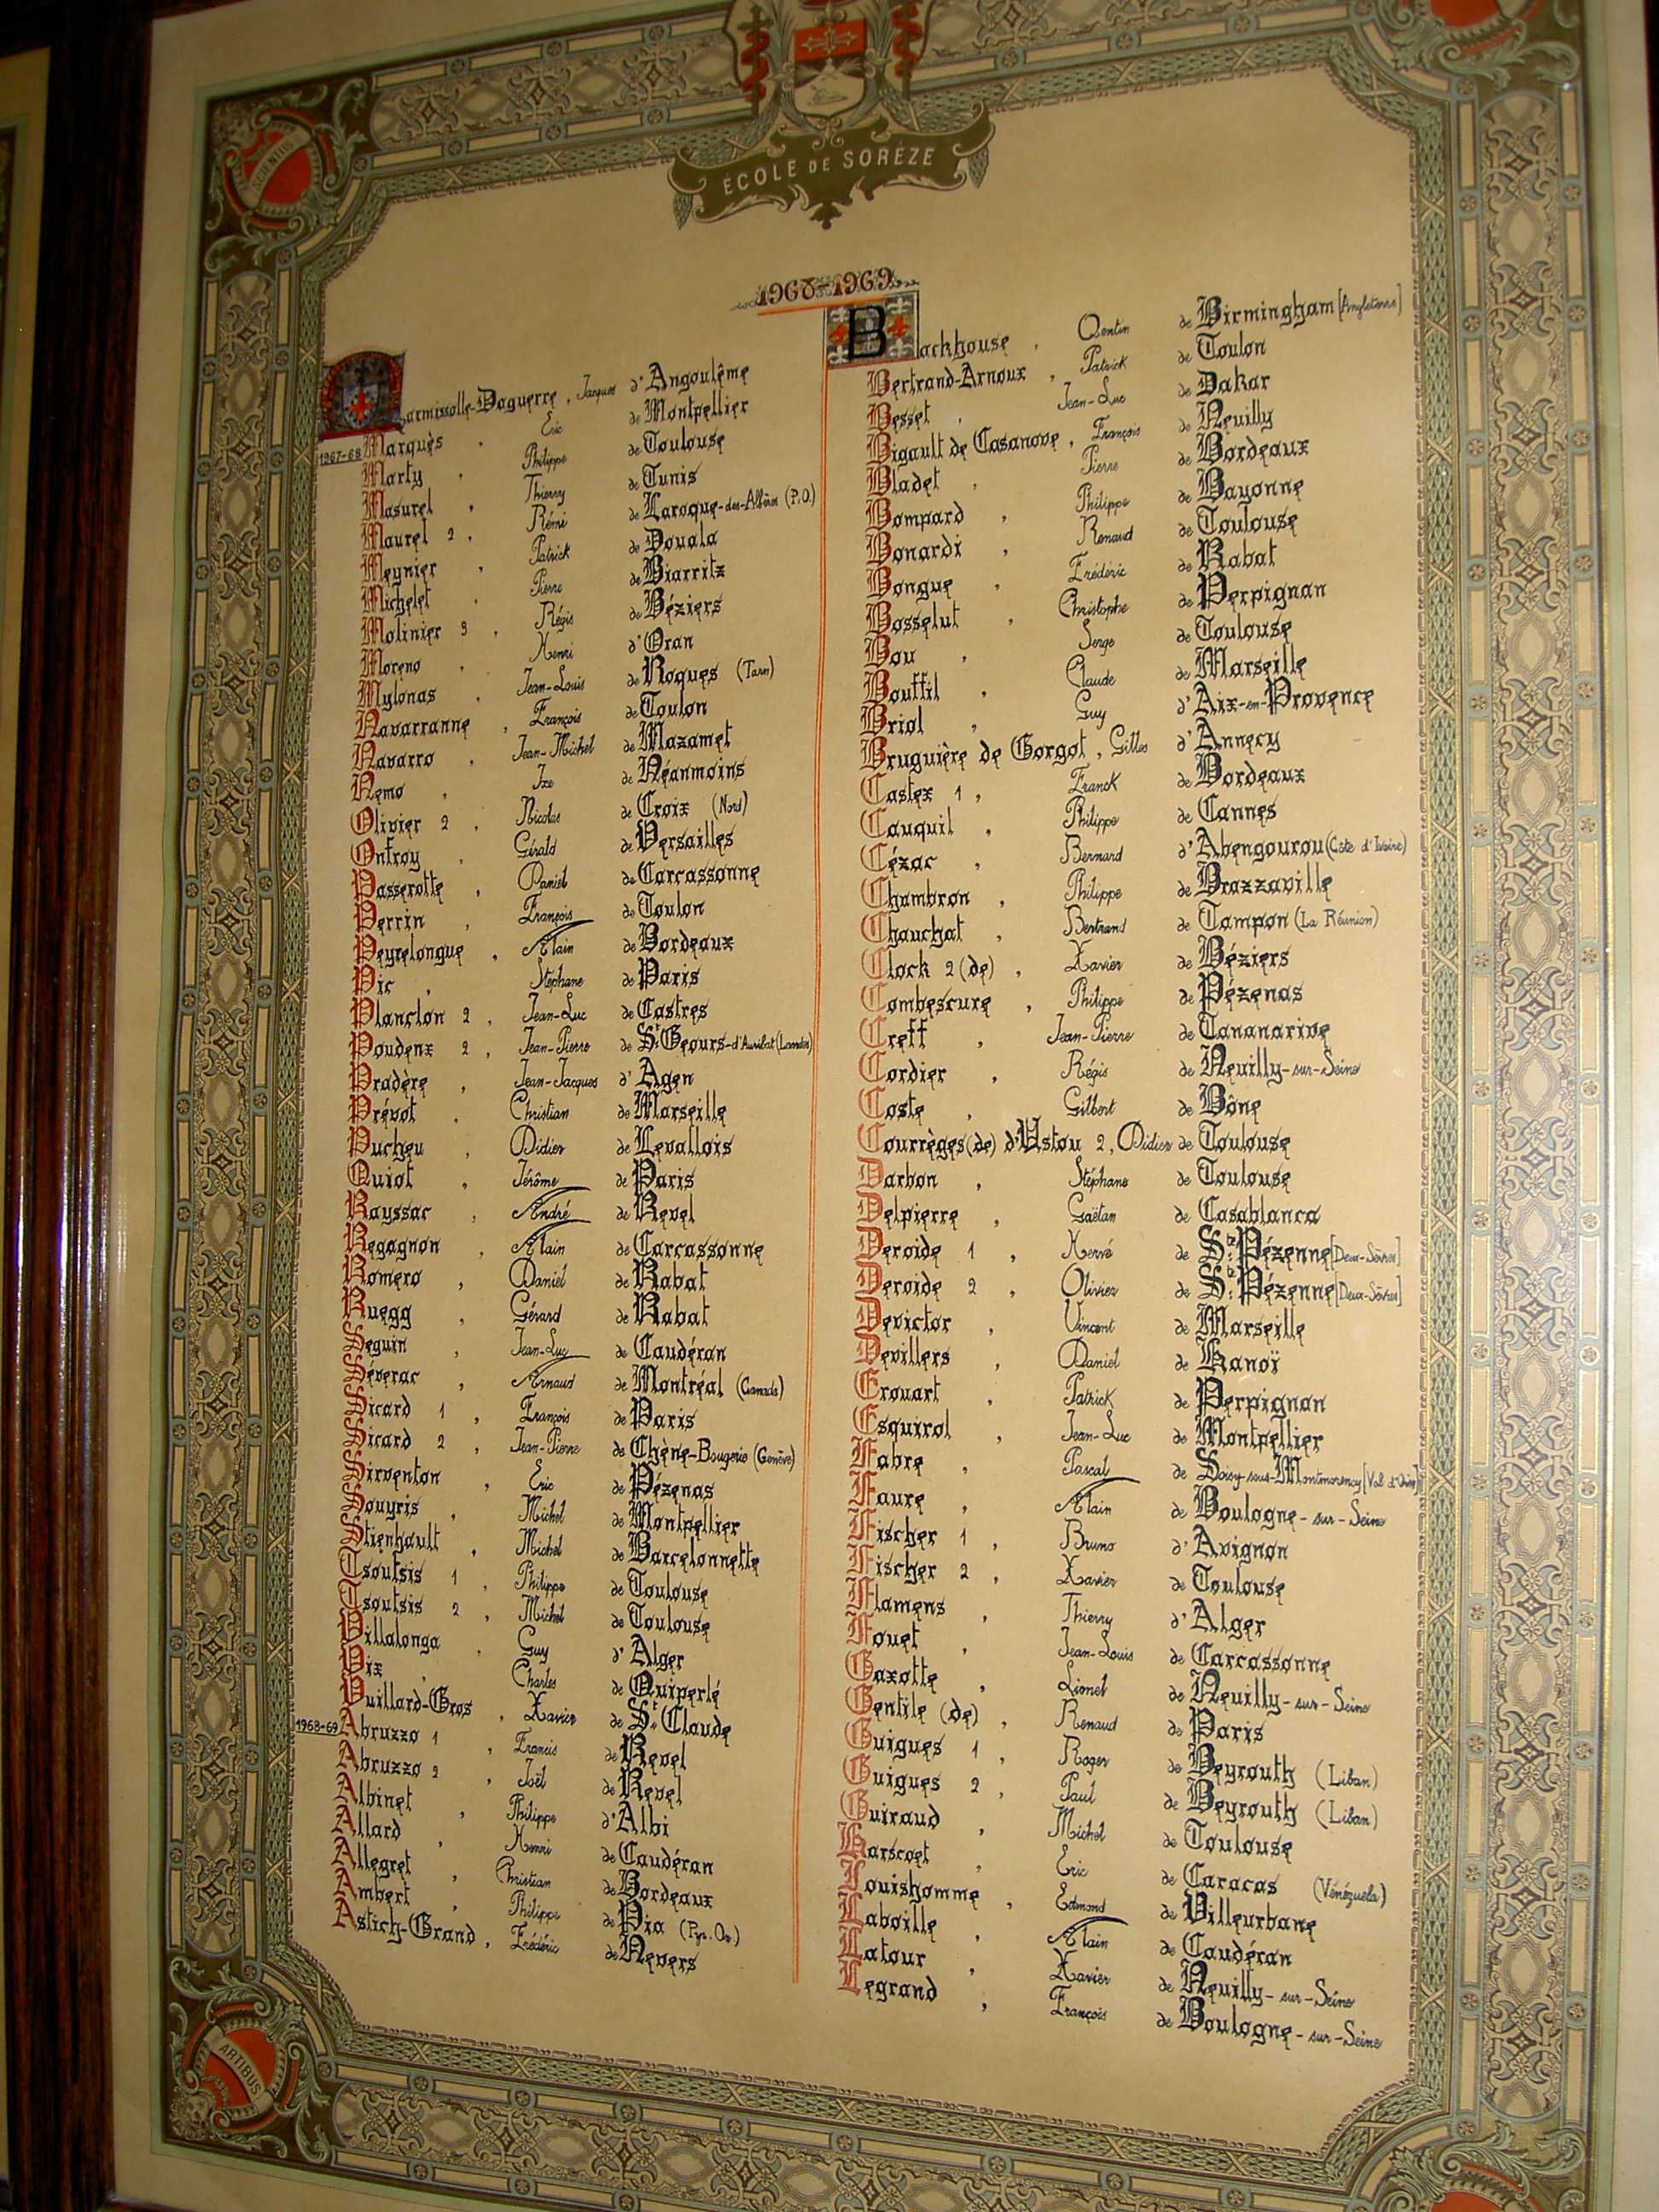 SCIENTIIS
ÉCOLE DE SORÈZE
1968-1969
armissolle-Daguerre, Jacques d'Angoulême
1967-68 Marquès, Eric de Montpellier
Marty, Philippe de Toulouse
Masurel, Thierry de Tunis
Maurel 2, Rémi de Laroque-des-Albères (P.O.)
Meynier, Patrick de Douala
Michelet, Pierre de Biarritz
Molinier 3, Régis de Béziers
Moreno, Henri d'Oran
Mylonas, Jean-Louis de Roques (Tarn)
Navarranne, François de Toulon
Navarro, Jean-Michel de Mazamet
Nemo, Ixe de Néanmoins
Olivier 2, Nicolas de Croix (Nord)
Onfroy, Gérald de Versailles
Passerotte, Daniel de Carcassonne
Perrin, François de Toulon
Peyrelongue, Alain de Bordeaux
Pic, Stéphane de Paris
Planclon 2, Jean-Luc de Castres
Poudenx 2, Jean-Pierre de St. Geours-d'Auribat (Landes)
Pradère, Jean-Jacques d'Agen
Prévot, Christian de Marseille
Pucheu, Didier de Levallois
Quiot, Jérôme de Paris
Rayssac, André de Revel
Regagnon, Alain de Carcassonne
Romero, Daniel de Rabat
Ruegg, Gérard de Rabat
Seguin, Jean-Luc de Caudéran
Séverac, Arnaud de Montréal (Canada)
Sicard 1, François de Paris
Sicard 2, Jean-Pierre de Chène-Bougerie (Genève)
Sirventon, Eric de Pézenas
Souyris, Michel de Montpellier
Stienhault, Michel de Barcelonnette
Tsoutsis 1, Philippe de Toulouse
Tsoutsis 2, Michel de Toulouse
Villalonga, Guy d'Alger
Vix, Charles de Quiperlé
Vuillard-Gros, Xavier de St. Claude
1968-69 Abruzzo 1, Francis de Revel
Abruzzo 2, Joël de Revel
Albinet, Philippe d'Albi
Allard, Henri de Caudéran
Allegret, Christian de Bordeaux
Ambert, Philippe de Pia (Pyr. Or.)
Astich-Grand, Frédéric de Nevers
Backhouse, Qentin de Birmingham [Angleterre]
Bertrand-Arnoux, Patrick de Toulon
Besset, Jean-Luc de Dakar
Bigault de Casanove, François de Neuilly
Bladet, Pierre de Bordeaux
Bompard, Philippe de Bayonne
Bonardi, Renaud de Toulouse
Bongue, Frédéric de Rabat
Bosselut, Christophe de Perpignan
Bou, Serge de Toulouse
Bouttil, Claude de Marseille
Briol, Guy d'Aix-en-Provence
Bruguière de Gorgot, Gilles d'Annecy
Castex 1, Franck de Bordeaux
Cauquil, Philippe de Cannes
Cézac, Bernard d'Abengourou (Côte d'Ivoire)
Chambron, Philippe de Brazzaville
Chauchat, Bertrand de Tampon (La Réunion)
Clock 2 (de), Xavier de Béziers
Combescure, Philippe de Pézenas
Creff, Jean-Pierre de Tananarive
Cordier, Régis de Neuilly-sur-Seine
Coste, Gilbert de Bône
Courrèges (de) d'Ustou 2, Didier de Toulouse
Darbon, Stéphane de Toulouse
Delpierre, Gaëtan de Casablanca
Deroide 1, Hervé de Ste. Pézenne [Deux-Sèvres]
Deroide 2, Olivier de Ste. Pézenne [Deux-Sèvres]
Devictor, Vincent de Marseille
Devillers, Daniel de Hanoï
Erouart, Patrick de Perpignan
Esquirol, Jean-Luc de Montpellier
Fabre, Pascal de Soisy-sous-Montmorency [Val d'Oise]
Faure, Alain de Boulogne-sur-Seine
Fischer 1, Bruno d'Avignon
Fischer 2, Xavier de Toulouse
Flamens, Thierry d'Alger
Fouet, Jean-Louis de Carcassonne
Gaxotte, Lionel de Neuilly-sur-Seine
Gentile (de), Renaud de Paris
Guigues 1, Roger de Beyrouth (Liban)
Guigues 2, Paul de Beyrouth (Liban)
Guiraud, Michel de Toulouse
Harscoet, Eric de Caracas (Vénézuela)
Jouishomme, Edmond de Villeurbane
Laboille, Alain de Caudéran
Latour, Xavier de Neuilly-sur-Seine
Legrand, François de Boulogne-sur-Seine
ARTIBUS